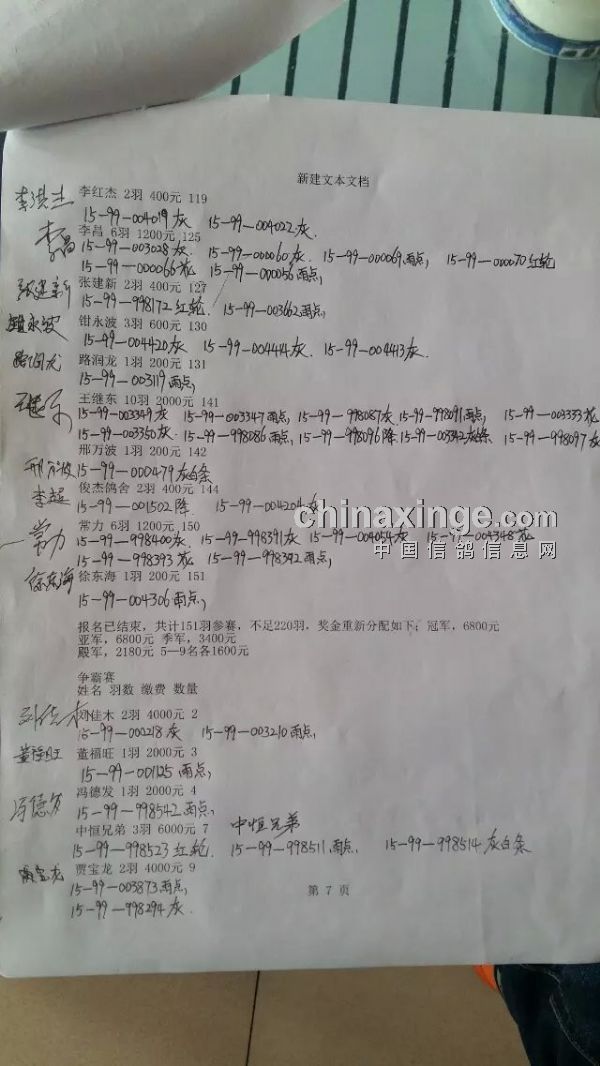 新建文本文档
李洪杰 李红杰 2羽 400元 119
15-99-004019灰 15-99-004022灰.
李昌 李昌 6羽 1200元 125
15-99-003028灰. 15-99-000060灰. 15-99-000069雨点, 15-99-000070红轮
15-99-000066花 15-99-000056雨点,
张建新 张建新 2羽 400元 127
15-99-998172红轮. 15-99-003662雨点,
钳永波 3羽 600元 130
15-99-004420灰 15-99-004414灰. 15-99-004413灰.
路润龙 路润龙 1羽 200元 131
15-99-003119雨点,
王继东 王继东 10羽 2000元 141
15-99-003349灰 15-99-003347雨点, 15-99-998087灰. 15-99-998091雨点, 15-99-003333花
15-99-003350灰. 15-99-998086雨点, 15-99-998096降. 15-99-003342灰白条 15-99-998097灰
邢万波 1羽 200元 142
邢万波 15-99-000479灰白条
李超 俊杰鸽舍 2羽 400元 144
15-99-001502降. 15-99-004204灰
常力 常力 6羽 1200元 150
15-99-998400灰. 15-99-998391灰 15-99-004054灰 15-99-004348花
15-99-998393花 15-99-998392雨点,
徐东海 徐东海 1羽 200元 151
15-99-004306雨点,
chinaxinge.com
中国信鸽信息网
报名已结束，共计151羽参赛，不足220羽，奖金重新分配如下；冠军，6800元
亚军，6800元 季军，3400元
殿军，2180元 5—9名各1600元
争霸赛
姓名 羽数 缴费 数量
刘佳木 刘佳木 2羽 4000元 2
15-99-000218灰 15-99-003210雨点,
董福旺 董福旺 1羽 2000元 3
15-99-001125雨点,
冯德发 冯德发 1羽 2000元 4
15-99-998542雨点,
中恒兄弟 3羽 6000元 7 中恒兄弟
15-99-998523红轮. 15-99-998511雨点. 15-99-998514灰白条
贾宝龙 贾宝龙 2羽 4000元 9
15-99-003873雨点,
15-99-998294灰.
第 7 页